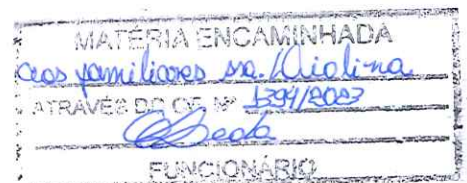 MATÉRIA ENCAMINHADA
aos familiares sra.
ATRAVÉS DO OF. Nº 1394/2023
FUNCIONÁRIO